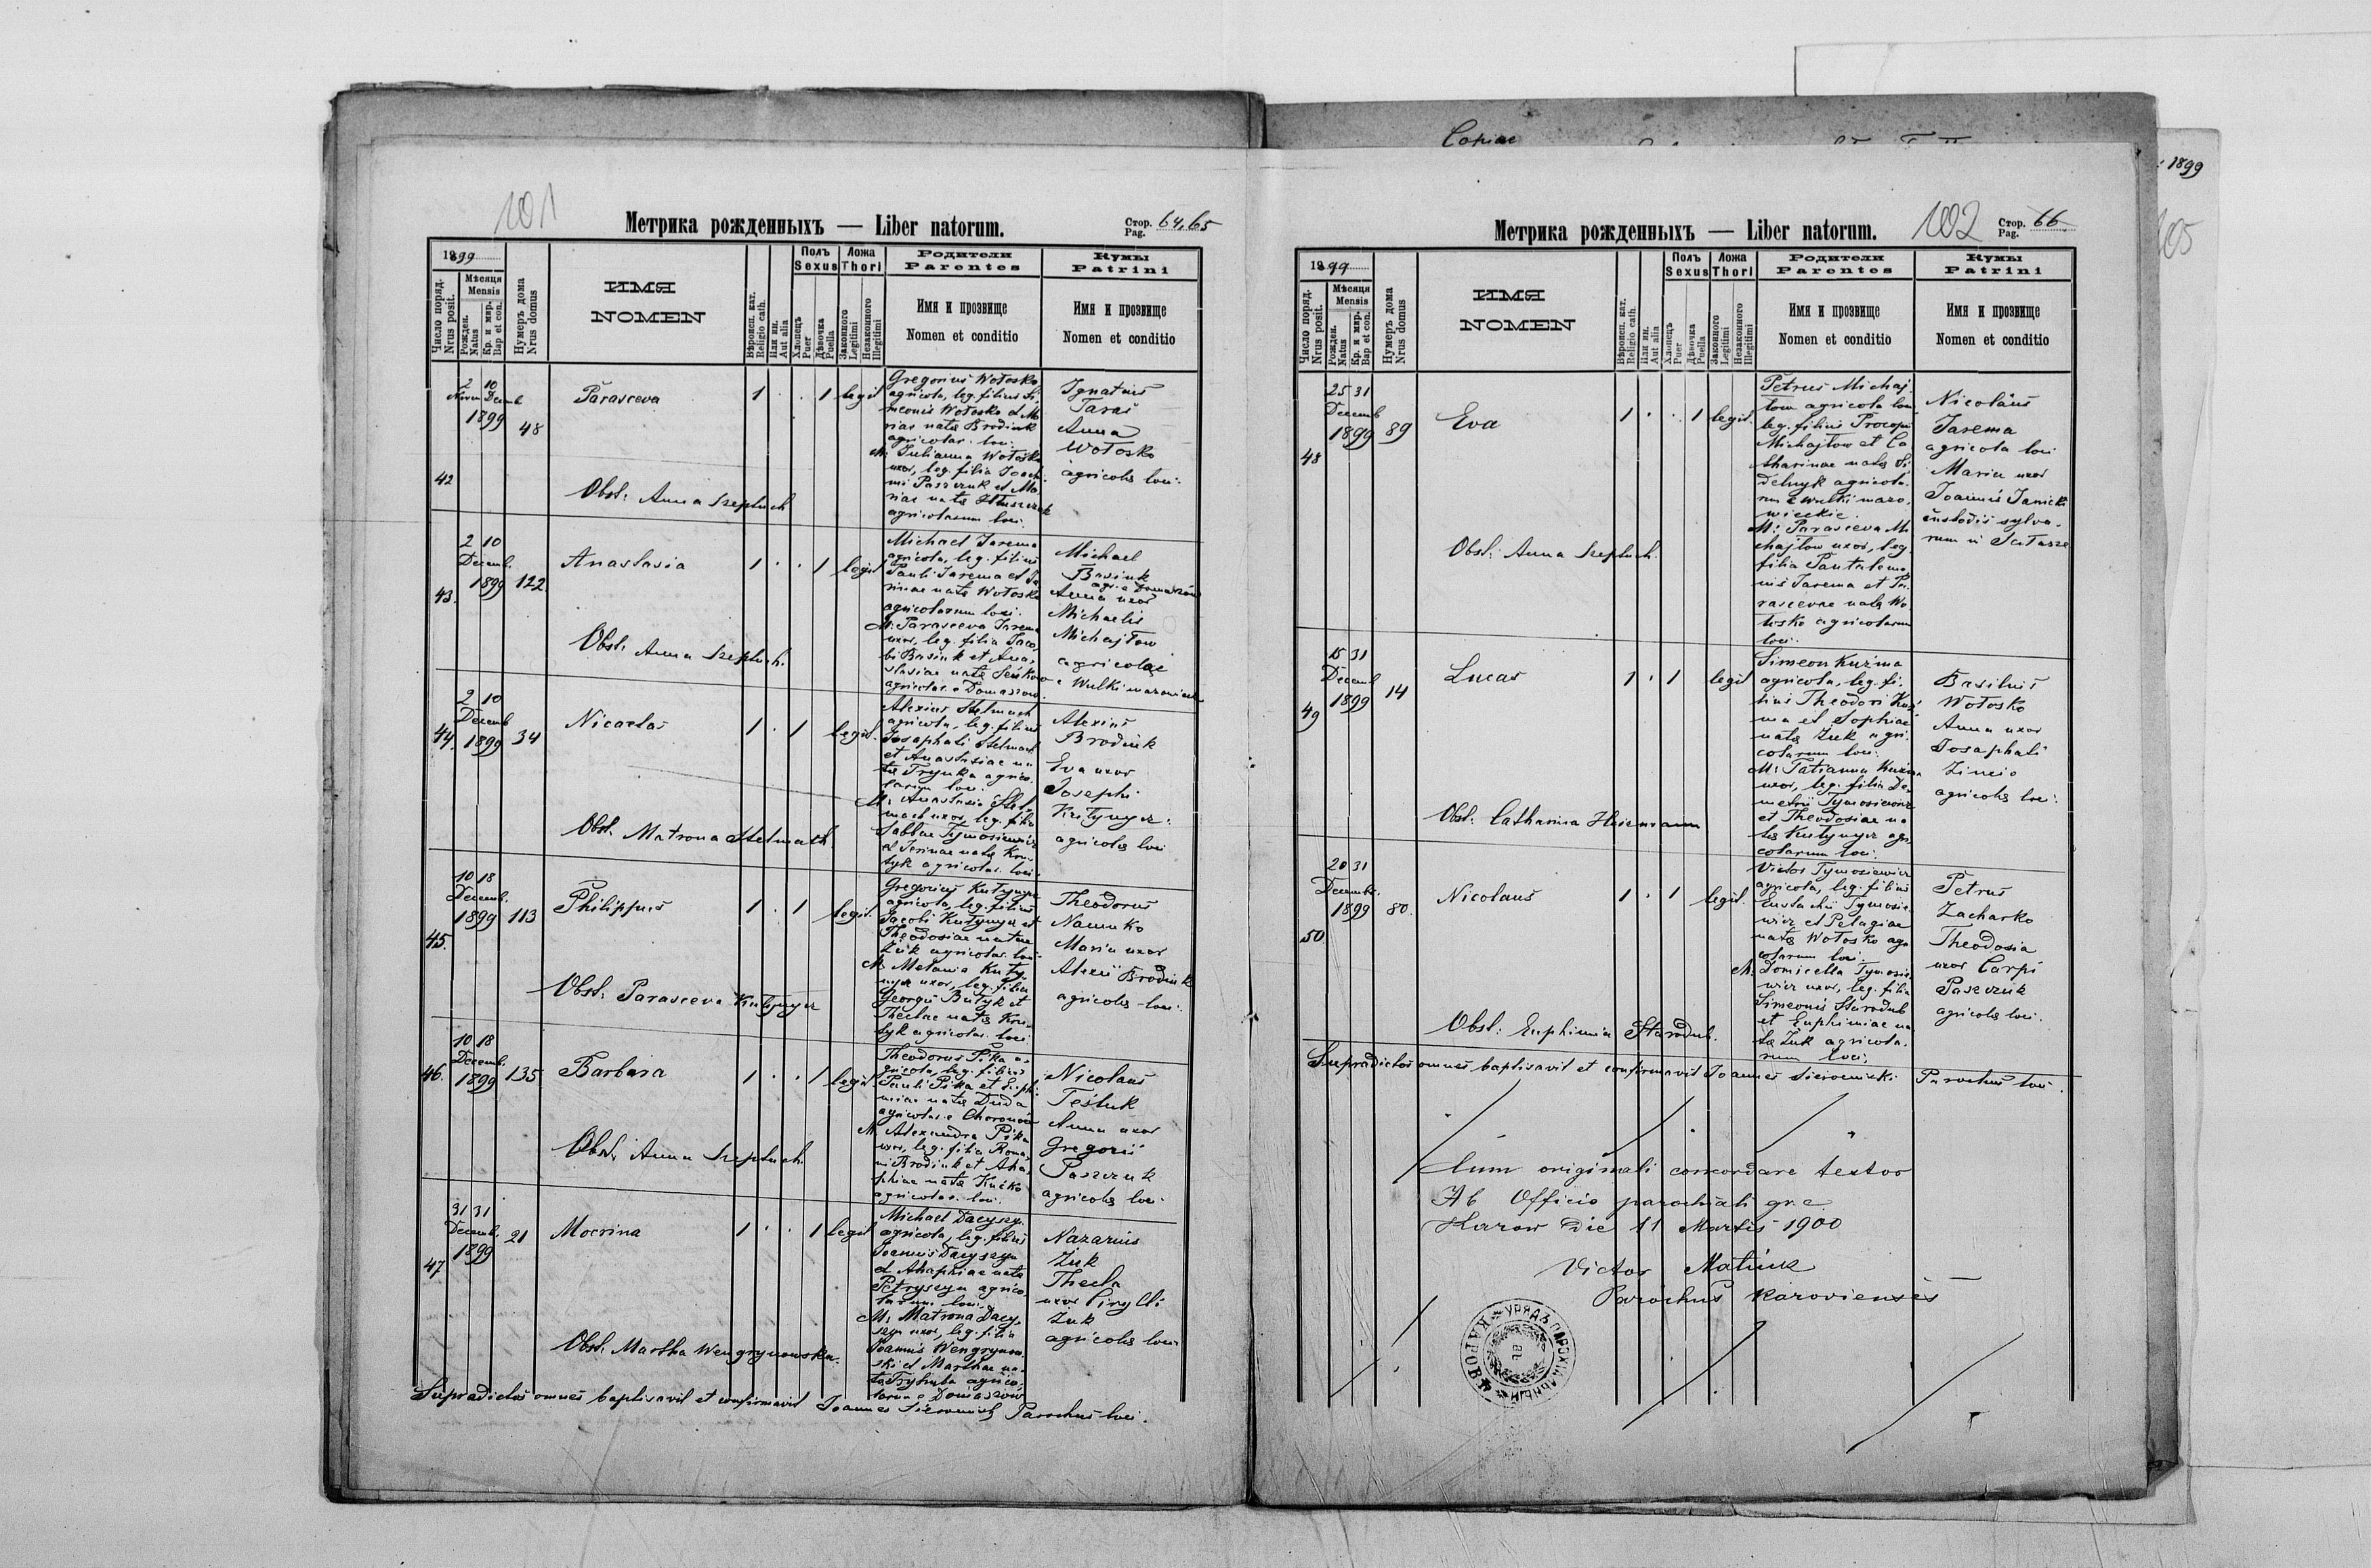 Copiae
: 1899
105
101
Метрика рожденныхъ — Liber natorum.
Стор. Pag. 64,65
1899
Число поряд. Nrus posit.
Мѣсяця Mensis
Рожден. Natus
Кр. и мѵр. Bap et con.
Нумеръ дома Nrus domus
ИМЯ
NOMEN
Вѣроисп. кат. Religio cath.
Или ин. Aut alia
Полъ Sexus
Хлопецъ Puer
Дѣвочка Puella
Ложа Thori
Законного Legitimi
Незаконного Illegitimi
Родители
Parentes
Имя и прозвище
Nomen et conditio
Кумы
Patrini
Имя и прозвище
Nomen et conditio
42
2 10
Decemb
1899
48
Parasceva
1 . . 1 legit
Obst: Anna Szeptuch
Gregorius Wołosko
agricola, leg. filius Si-
meonis Wołosko et Ma
riae natae Brodiuk
agricolar. loci.
M: Julianna Wołosko
uxor, leg. filia Joach
mi Paszczuk et Ma
riae natae
agricolarum loci
Ignatius
Taras
Anna
Wołosko
agricolae loci.
43.
2 10
Decemb.
1899
122.
Anastasia
1 . . 1 legit
Obst. Anna Szeptuch.
Michael Jarema
agricola, leg. filius
Pauli Jarema et Ja
rinae natae Wołosko
agricolarum loci.
M: Parasceva Jarema
uxor, leg. filia Jaco-
bi Basiuk et Ana-
stasiae natae Seńko
agricolar. e Domaszow.
Michael
Basiuk
agr. e Domaszów
Anna uxor
Michaelis
Michajłow
agricolae
e Wulki mazowiecka
44.
2 10
Decemb
1899
34
Nicaetas
1 . 1 legit.
Obst. Matrona Stelmach
Alexius Stelmach
agricola, leg. filius
Josaphati Stelmach
et Anastasiae na
tae Frynka agrico
larum loci.
M: Anastasia Stel-
mach uxor, leg. filia
Sabbae Tymosiewicz
et Irinae natae Kru-
tyk agricolar. loci.
Alexius
Brodiuk
Eva uxor
Josephi
Kutynycz.
agricolae loci
45.
10 18
Decemb.
1899
113
Philippus
1 . 1 legit.
Obst: Parasceva Kutynycz
Gregorius Kutynycz
agricola, leg. filius
Jacobi Kutynycz et
Theodosiae natae
Żuk agricolar. loci
M: Melania Kuty-
nycz uxor, leg. filia
Georgii Butyk et
Theclae natae Kru-
tyk agricolar. loci
Theodorus
Naumko
Maria uxor
Alexii Brodiuk
agricolae loci.
46.
10 18
Decemb.
1899
135
Barbara
1 . . 1 legit
Obst: Anna Szeptuch
Theodorus Pika a-
gricola, leg. filius
Pauli Pika et Euphi-
miae natae Duda
agricolar. e Choronów
M: Alexandra Pika
uxor, leg. filia Roma-
ni Brodiuk et Aha-
phiae natae Kućko
agricolar. loci.
Nicolaus
Tesluk
Anna uxor
Gregorii
Paszczuk
agricolae loci.
47
31 31
Decemb.
1899
21
Mocrina
1 . . 1 legit
Obst: Martha Wengrynowska.
Michael Dacyszyn
agricola, leg. filius
Joannis Dacyszyn
et Ahaphiae natae
Petryszyn agrico-
larum loci.
M: Matrona Dacy-
szyn uxor, leg. filia
Joannis Wengrynow-
ski et Marthae na-
tae agrico-
larum e Domaszów
Nazarius
Żuk
Thecla
uxor Cirylli
Żuk
agricolae loci
Supradictos omnes baptisavit et confirmavit Joannes Sieroenicki Parochus loci.
102
Метрика рожденныхъ — Liber natorum.
Стор. Pag. 66
1899
Число поряд. Nrus posit.
Мѣсяця Mensis
Рожден. Natus
Кр. и мѵр. Bap et con.
Нумеръ дома Nrus domus
ИМЯ
NOMEN
Вѣроисп. кат. Religio cath.
Или ин. Aut alia
Полъ Sexus
Хлопецъ Puer
Дѣвочка Puella
Ложа Thori
Законного Legitimi
Незаконного Illegitimi
Родители
Parentes
Имя и прозвище
Nomen et conditio
Кумы
Patrini
Имя и прозвище
Nomen et conditio
48
25 31
Decemb
1899
89
Eva
1 . . 1 legit.
Obst: Anna Szeptuch.
Petrus Michaj-
łow agricola loci
leg. filius Procopi
Michajłow et Ca
tharinae natae Si
delnyk agricola-
rum e Wulki mazo-
wieckie.
M: Parasceva Mi
chajłow uxor, leg
filia Pantalemo-
nis Jarema et Pa-
rascevae natae Wo
łosko agricolarum
loci.
Nicolaus
Jarema
agricola loci
Maria uxor
Joannis Janicki
custodis sylva-
rum in
49
15 31
Decemb
1899
14
Lucas
1 . 1 legit
Obst: Catharina
Simeon Kuźma
agricola, leg. fi-
lius Theodori Kuź
ma et Sophiae
natae Żuk agri-
colarum loci.
M: Tatianna Kuźma
uxor, leg. filia De-
metrii Tymosiewicz
et Theodosiae na
tae Kutynycz agri
colarum loci.
Basilius
Wołosko
Anna uxor
Josaphati
Zincio
agricolae loci.
50
20 31
Decemb.
1899
80.
Nicolaus
1 . 1 legit.
Obst: Euphimia Starodub.
Victor Tymosiewicz
agricola, leg. filius
Eustachii Tymosie-
wicz et Pelagiae
natae Wołosko agri
colarum loci.
M: Domicella Tymosie-
wicz uxor, leg. filia
Simeonis Starodub
et Euphimiae na
tae Żuk agricola-
rum loci.
Petrus
Zacharko
Theodosia
uxor Carpi
Paszczuk
agricolae loci.
Supradictos omnes baptisavit et confirmavit Joannes Sieroenicki Parochus loci.
Cum originali concordare testor
Ab Officio parochiali gr. c.
Karow die 11 Martis 1900
Victor Matiuk
Parochus karoviensis
УРЯДЪ ПАРОХІАЛЬНЫЙ КАРОВЪ